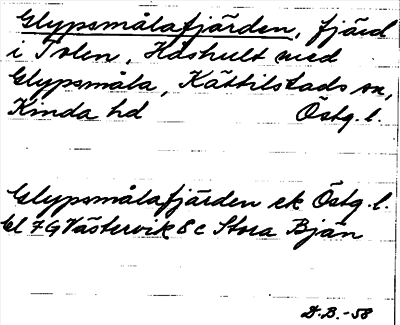 Glypsmålafjärden, fjärd
i Tolen, Håshult med
Glypsmåla, Kättilstads sn,
Kinda hd Östg. l.
Glypsmålafjärden ek Östg. l.
bl 7G Västervik 8c Stora Bjän
D.B.-58